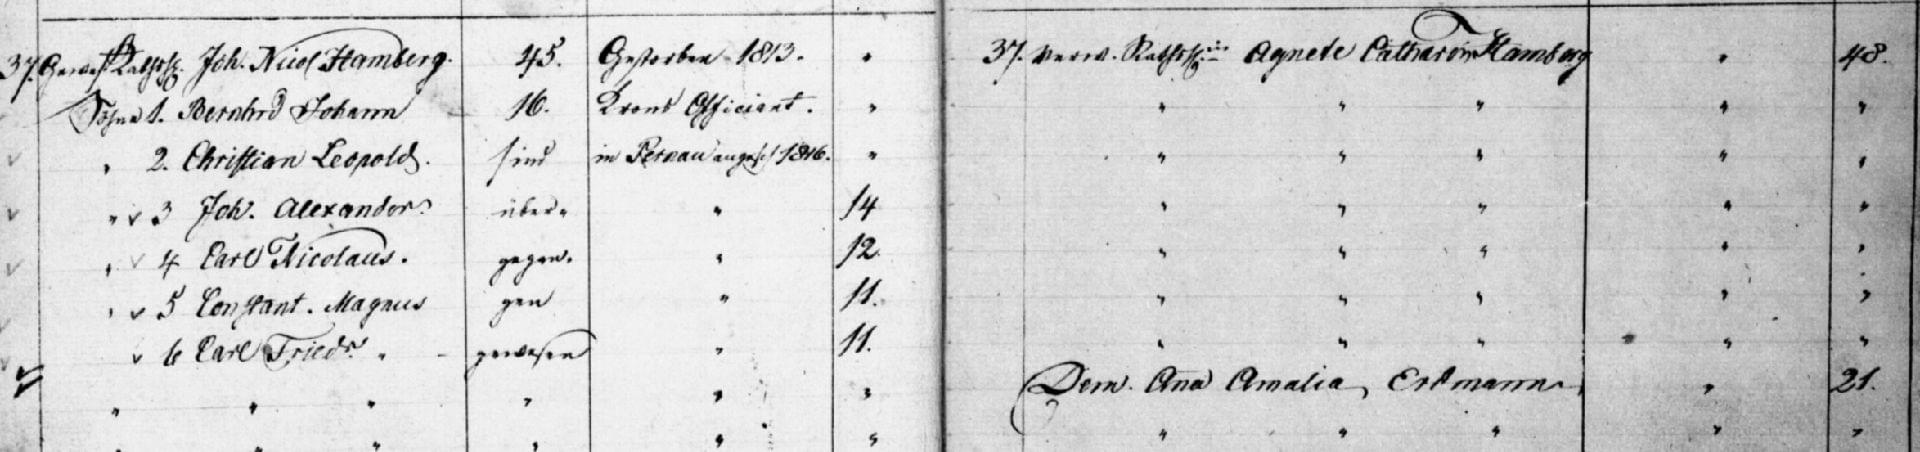 37. Gewes. Rathsh. Joh. Nicol Hamberg. 45. Gestorben 1813. " 37. Verw. Rathsh. Agneta Catharin Hamberg " 48.
Söhne 1. Bernhrd Johann 16. Krons Officiant. " " " " " "
" 2. Christian Leopold. sind in Pernau 1816. " " " " " "
" v 3 Joh. Alexander. über " 14 " " " " "
" v 4 Carl Nicolaus. gegan. " 12. " " " " "
" v 5 Constant. Magnus gen " 11. " " " " "
v 6 Carl Friedr. " gewesen " 11. " " " " "
" " " " " " Dem. Ana Amalia, Erdmann " 21.
" " " " " " " " " " "